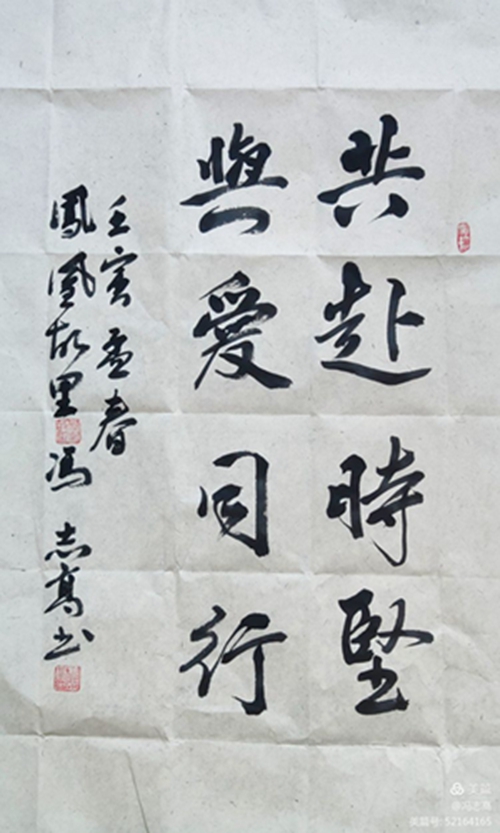 共赴時堅
與愛同行
壬寅孟春
鳳凰故里馮志高书
美篇
@冯志高
美篇号:52164165